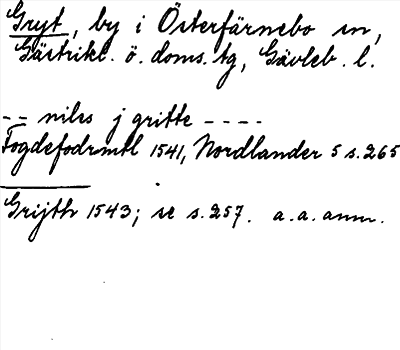 Gryt, by i Österfärnebo sn,
Gästrikl. ö. doms. tg, Gävleb. l.
-- nils j gritte ----
Fogdefodrmtl 1541, Nordlander 5 s. 265
Grijth 1543; se s. 257. a. a. anm.